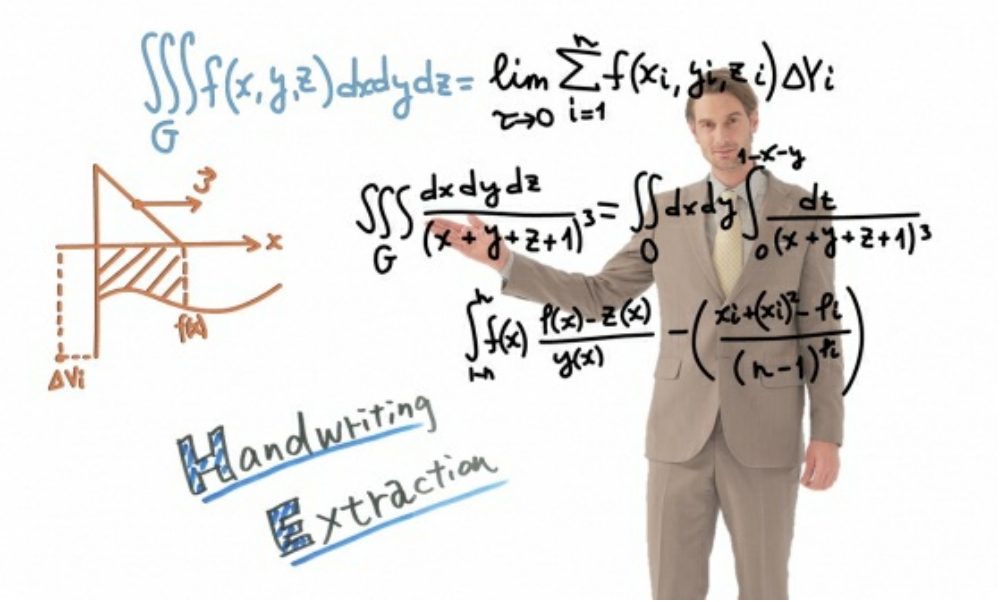 ∭_G f(x,y,z)dxdydz = lim_{τ→0} ∑_{i=1}^{n} f(xi, yi, zi)ΔVi
x
f(x)
ΔVi
∭_G dxdydz/(x+y+z+1)^3 = ∬_0 dxdy ∫_0^{1-x-y} dt/(x+y+z+1)^3
∫_{1-n}^{n} f(x) (f(x)-z(x))/y(x) - ((xi+(xi)^2-fi)/(n-1)^{fi})
Handwriting
Extraction